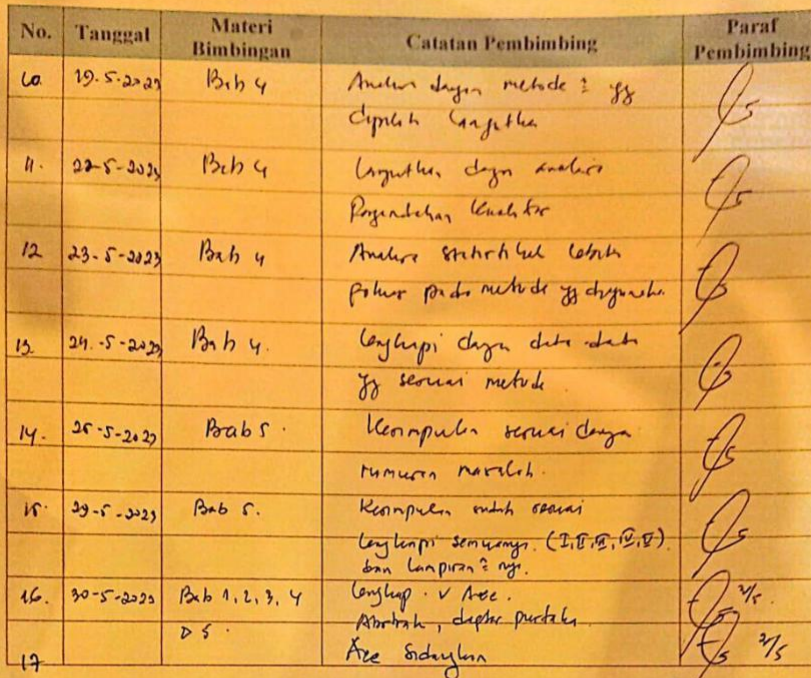 No. Tanggal Materi Bimbingan Catatan Pembimbing Paraf Pembimbing
10. 19-5-2023 Bab 4 Analisa dengan metode² yg
dipilih lanjutkan
11. 22-5-2023 Bab 4 Lanjutkan dengan analisis
Pengendalian kualitas
12 23-5-2023 Bab 4 Analisa statistikal lebih
fokus pada metode yg digunakan.
13. 24-5-2023 Bab 4. Lengkapi dengan data-data
yg sesuai metode.
14. 26-5-2023 Bab 5. Kesimpulan sesuai dengan
rumusan masalah.
15. 29-5-2023 Bab 5. Kesimpulan sudah sesuai
lengkapi semuanya. (I, II, III, IV, V)
dan lampiran²nya.
16. 30-5-2023 Bab 1, 2, 3, 4 Lengkap. v Acc.
5. Abstrak, daftar pustaka.
17 Acc Sidangkan